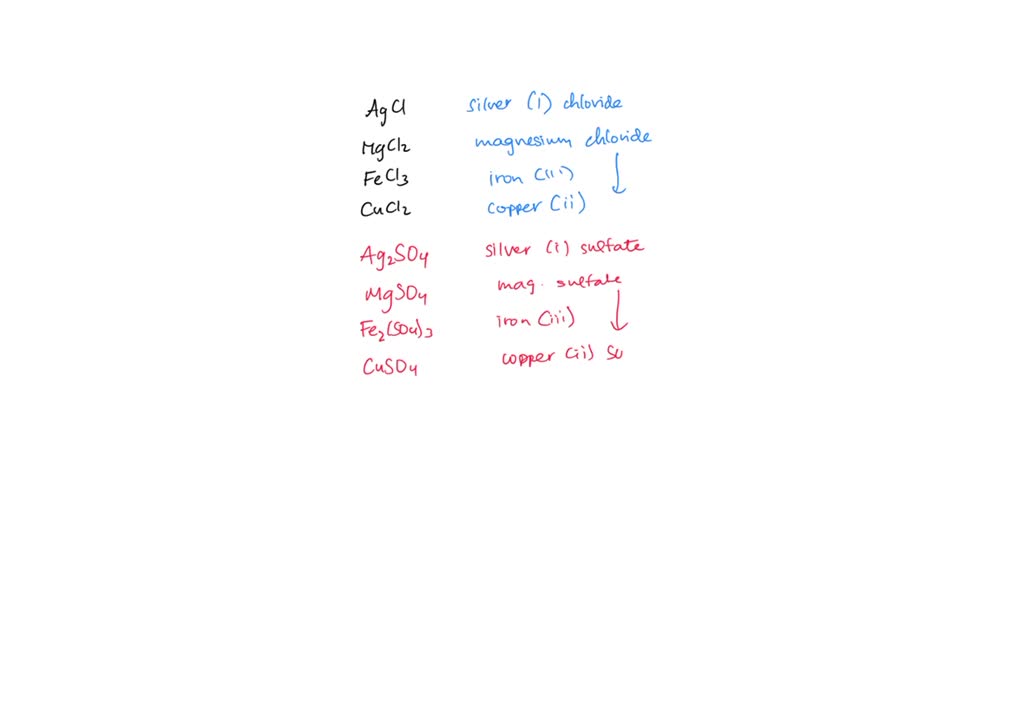 AgCl silver (I) chloride
MgCl2 magnesium chloride
FeCl3 iron (iii)
CuCl2 copper (ii)
Ag2SO4 silver (i) sulfate
MgSO4 mag. sulfate
Fe2(SO4)3 iron (iii)
CuSO4 copper (ii) su